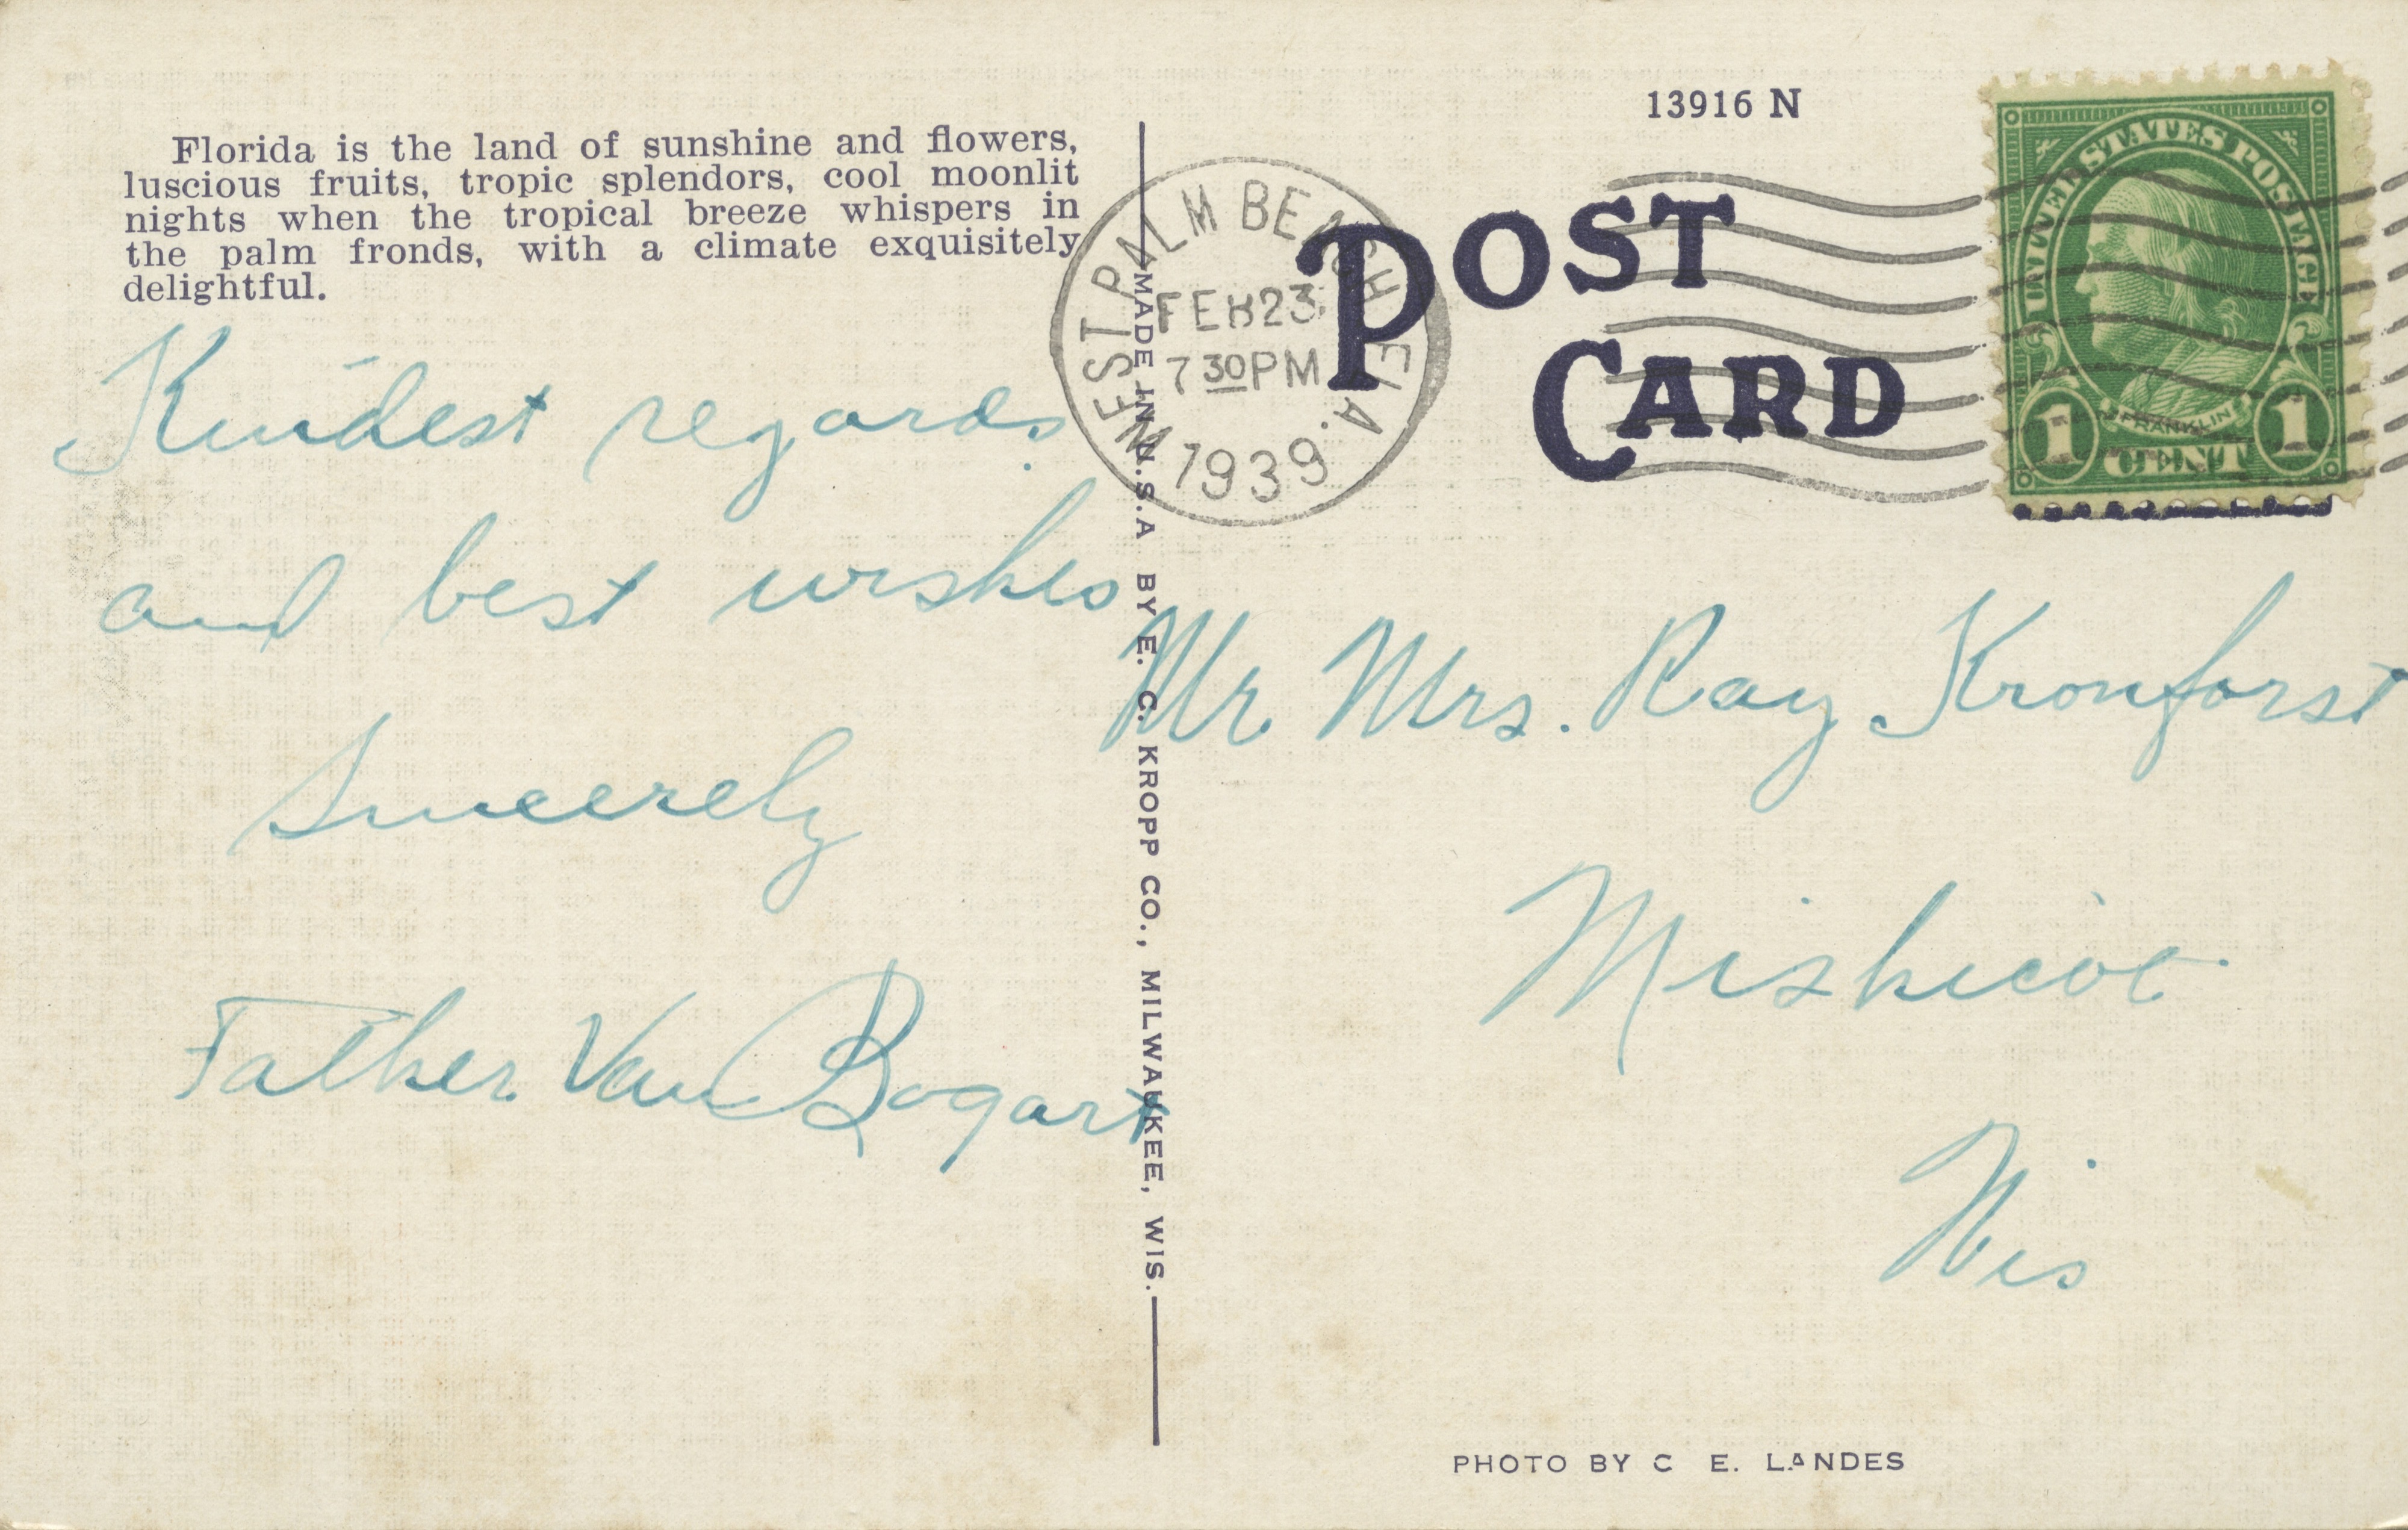 Florida is the land of sunshine and flowers,
luscious fruits, tropic splendors, cool moonlit
nights when the tropical breeze whispers in
the palm fronds, with a climate exquisitely
delightful.
Kindest regards
and best wishes
Sincerely
Father Van Bogart
MADE IN U.S.A BY E. C. KROPP CO., MILWAUKEE, WIS.
WEST PALM BEACH FLA.
FEB 23
7 30 PM
1939
13916 N
POST
CARD
UNITED STATES POSTAGE
FRANKLIN
1 CENT 1
Mr. Mrs. Ray Kronforst
Mishicot
Wis
PHOTO BY C E. LANDES